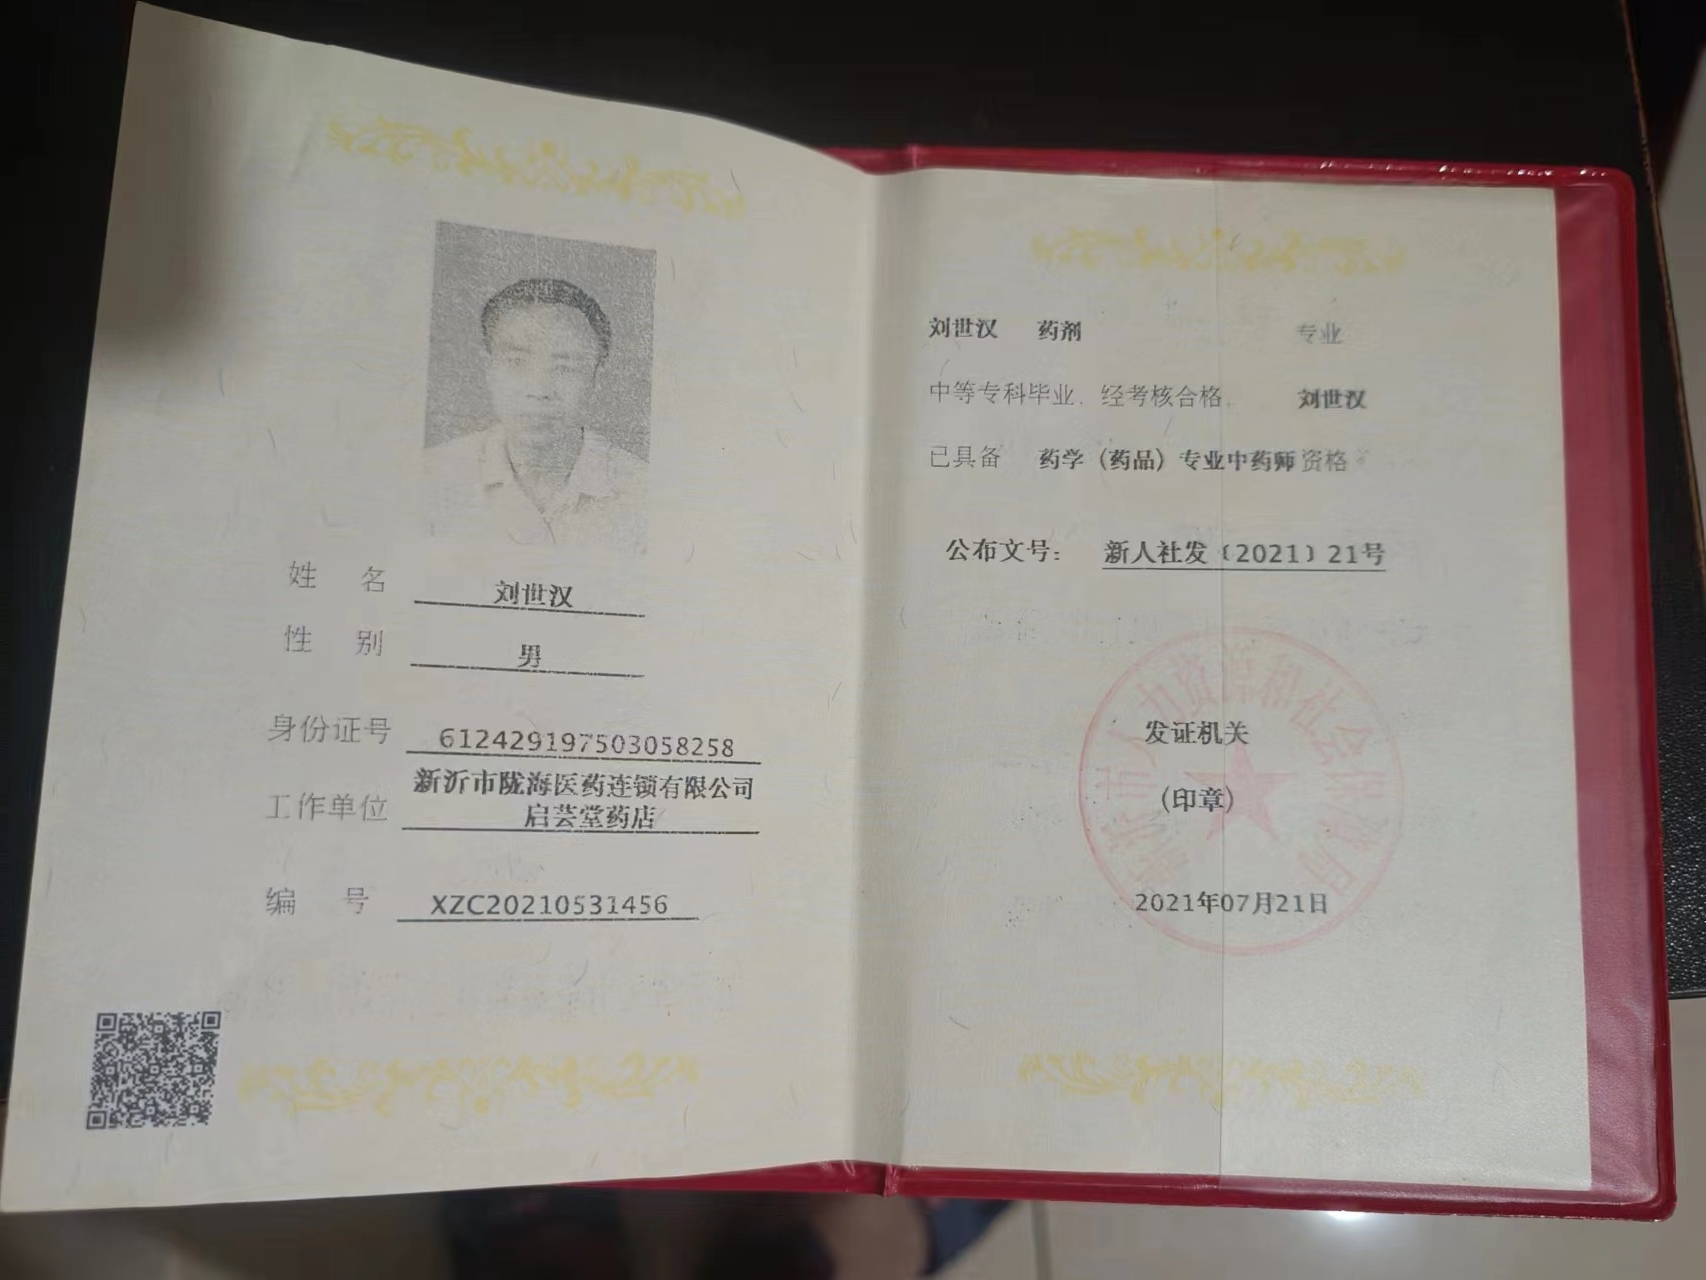 姓 名 刘世汉
性 别 男
身份证号 612429197503058258
工作单位 新沂市陇海医药连锁有限公司
启芸堂药店
编 号 XZC20210531456
刘世汉 药剂 专业
中等专科毕业，经考核合格， 刘世汉
已具备 药学（药品）专业中药师资格
公布文号： 新人社发〔2021〕21号
新沂市人力资源和社会保障局
发证机关
（印章）
2021年07月21日